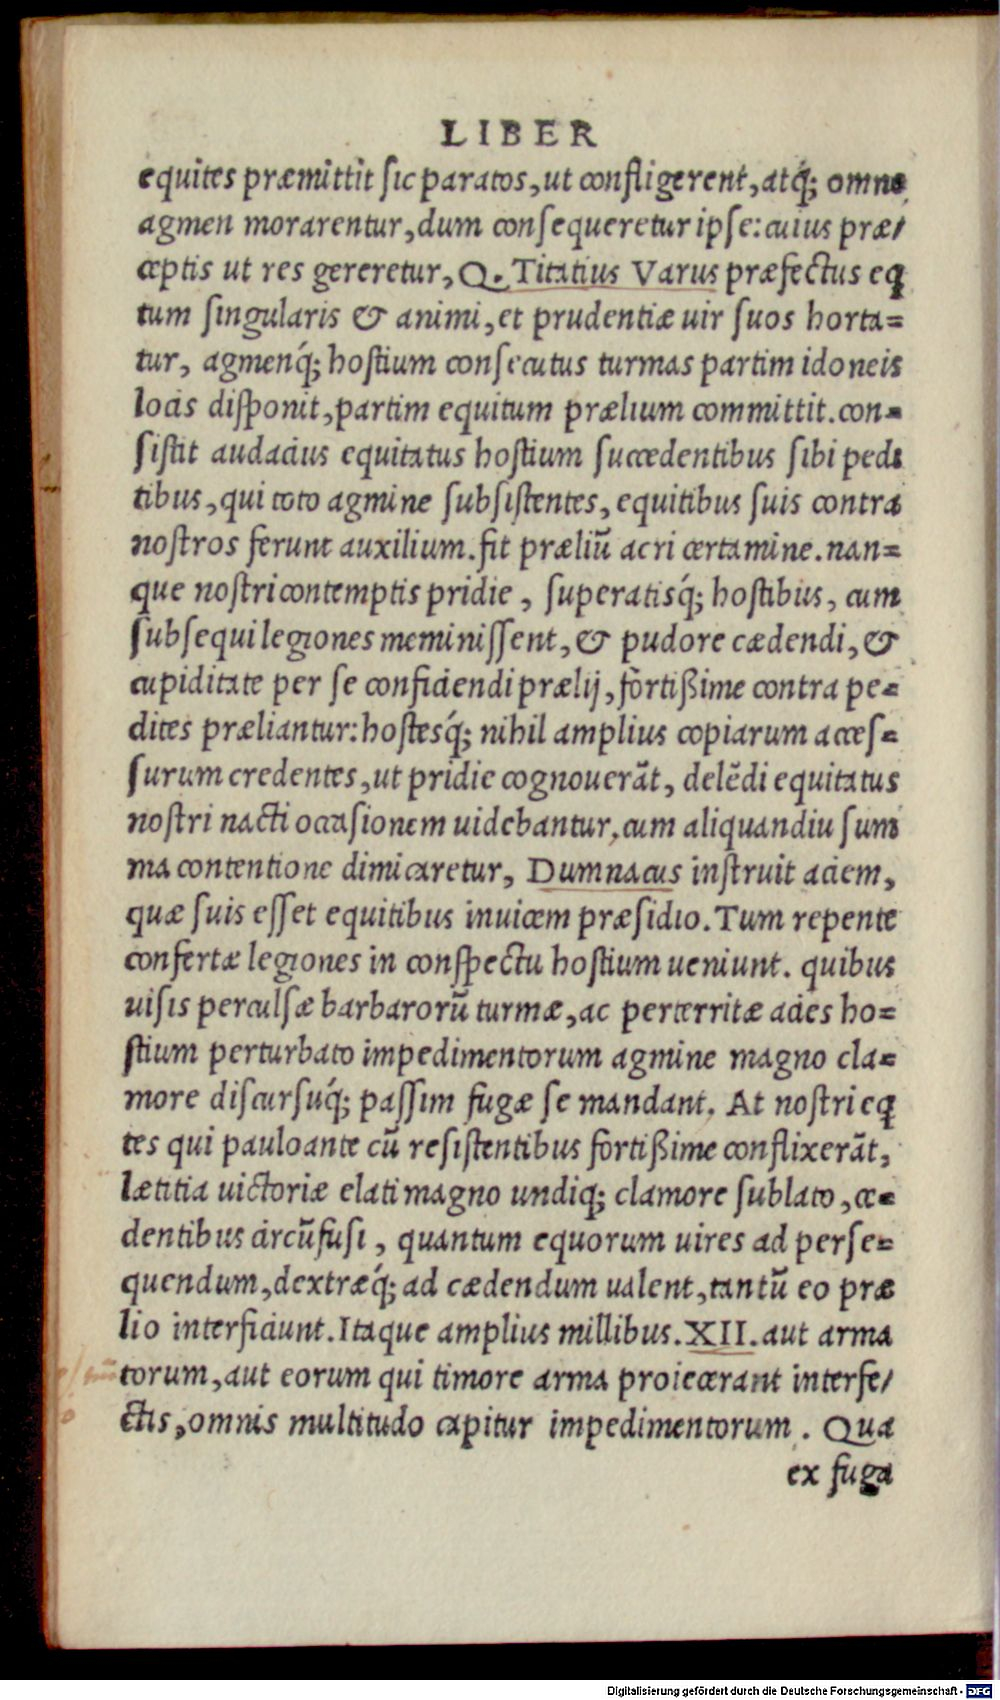 LIBER
equites præmittit sic paratos, ut confligerent, atq́; omne
agmen morarentur, dum consequeretur ipse: cuius præ/
ceptis ut res gereretur, Q. Titatius Varus præfectus eq
tum singularis & animi, et prudentiæ uir suos horta=
tur, agmenq́; hostium consecutus turmas partim idoneis
locis disponit, partim equitum prælium committit. con=
sistit audacius equitatus hostium succedentibus sibi pedi
tibus, qui toto agmine subsistentes, equitibus suis contra
nostros ferunt auxilium. fit præliū acri certamine. nan=
que nostri contemptis pridie, superatisq́; hostibus, cum
subsequi legiones meminissent, & pudore cædendi, &
cupiditate per se conficiendi prælij, fortißime contra pe=
dites præliantur: hostesq́; nihil amplius copiarum acces=
surum credentes, ut pridie cognouerāt, delēdi equitatus
nostri nacti occasionem uidebantur, cum aliquandiu sum
ma contentione dimicaretur, Dumnacus instruit aciem,
quæ suis esset equitibus inuicem præsidio. Tum repente
confertæ legiones in conspectu hostium ueniunt. quibus
uisis perculsæ barbarorū turmæ, ac perterritæ acies ho=
stium perturbato impedimentorum agmine magno cla=
more discursuq́; passim fugæ se mandant. At nostri eq
tes qui pauloante cū resistentibus fortißime conflixerāt,
lætitia uictoriæ elati magno undiq; clamore sublato, ce=
dentibus circūfusi, quantum equorum uires ad perse=
quendum, dextræq́; ad cædendum ualent, tantū eo præ
lio interficiunt. Itaque amplius millibus. XII. aut arma
torum, aut eorum qui timore arma proiecerant interfe/
ctis, omnis multitudo capitur impedimentorum. Qua
ex fuga
Digitalisierung gefördert durch die Deutsche Forschungsgemeinschaft - DFG